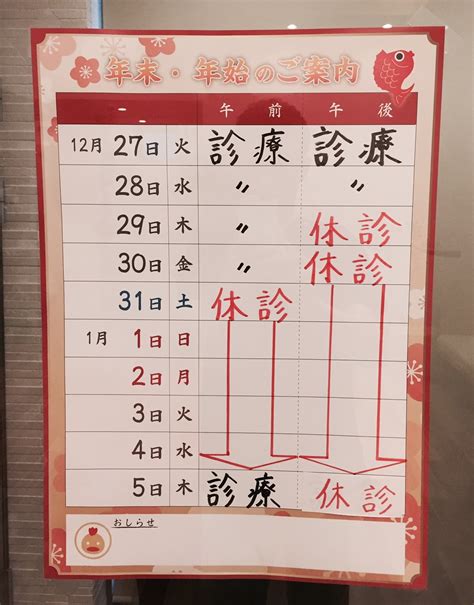 年末・年始のご案内
午前 午後
12月 27日 火 診療 診療
28日 水 〃 〃
29日 木 〃 休診
30日 金 〃 休診
31日 土 休診
1月 1日 日
2日 月
3日 火
4日 水
5日 木 診療 休診
おしらせ